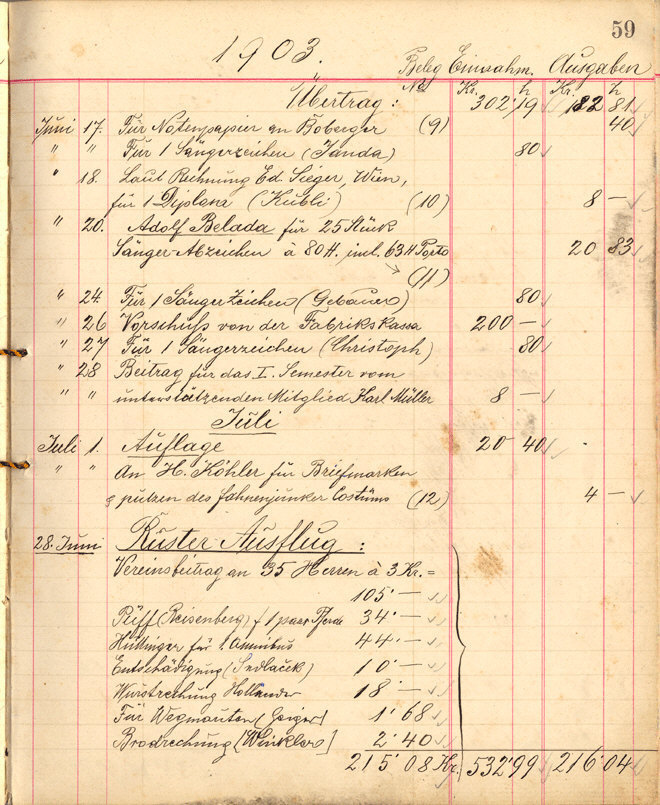 59
1903.
Beleg Einnahm. Ausgaben
No Kr. h Kr. h
Übertrag: 302·19 182 81
Juni 17. Für Notenpapier an Boberger (9) 40
" " Für 1 Sängerzeichen (Janda) 80
" 18. Laut Rechnung Ed. Sieger, Wien,
für 1 Diplom (Kubli) (10) 8 —
" 20. Adolf Belada für 25 Stück
Sänger-Abzeichen à 80 H. incl. 63 H Porto 20 83
(11)
" 24. Für 1 Sängerzeichen (Gebauer) 80
" 26 Vorschuß von der Fabrikskassa 200 —
" 27 Für 1 Sängerzeichen (Christoph) 80
" 28 Beitrag für das I. Semester vom
" " unterstützenden Mitglied Karl Müller 8 —
Juli
Juli 1. Auflage 20 40
" " An H. Köhler für Briefmarken
& putzen des Fahnenjunker Costüms (12) 4 —
28. Juni Ruster Ausflug:
Vereinsbeitrag an 35 Herren à 3 Kr. =
105·—
Püff (Reisenberg) f 1 paar Pferde 34·—
für 1 Omnibus 44·—
Entschädigung (Sedlaček) 10·—
Wurstrechnung Holländer 18·—
Für Wegmauten (Geiger) 1·68
Brodrechnung [Winkler] 2·40
215·08 Kr. 532·99 216·04